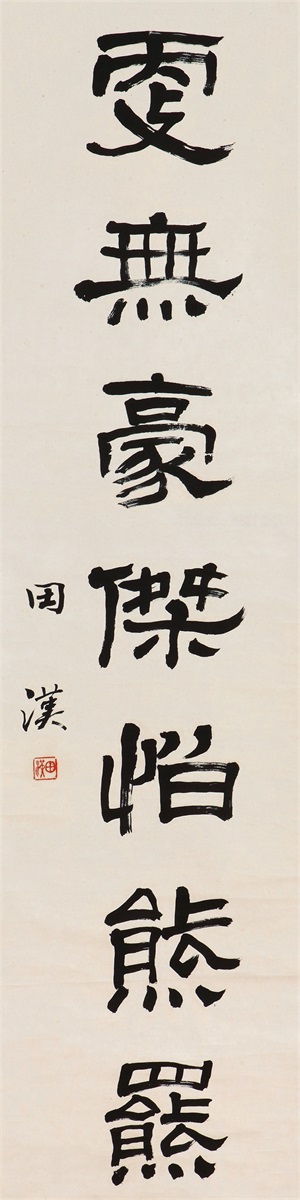 更無豪傑怕熊羆
田漢
田漢